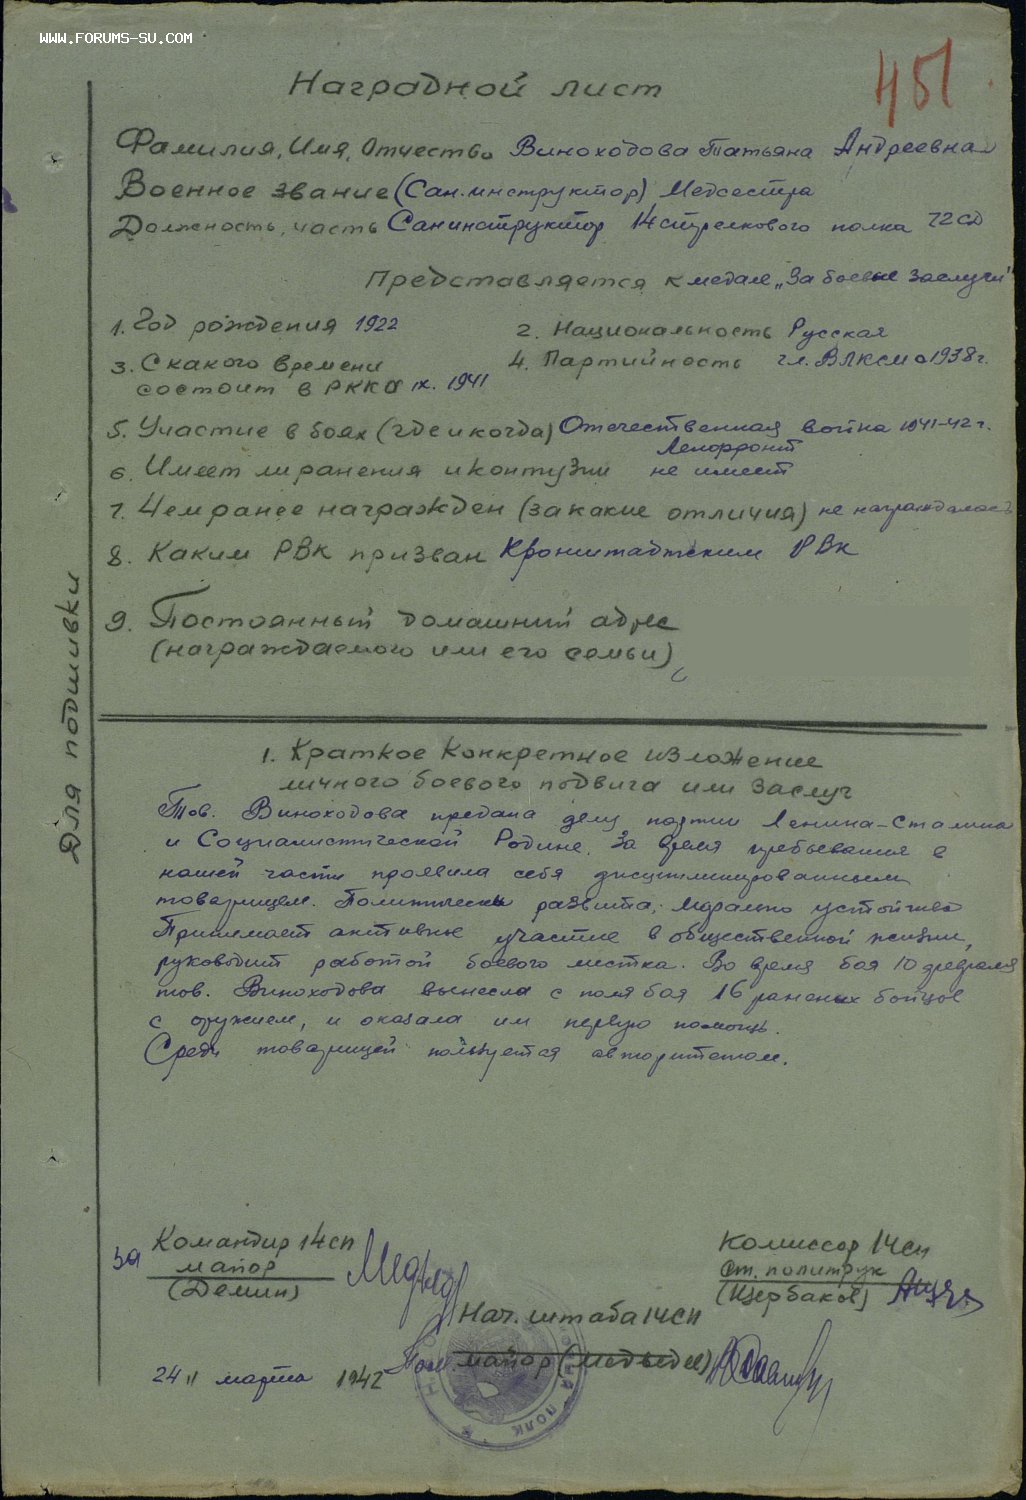 WWW.FORUMS-SU.COM
451
Наградной лист
Фамилия, Имя, Отчество Виноходова Татьяна Андреевна
Военное звание (Сан.инструктор) Медсестра
Должность, часть Санинструктор 14 стрелкового полка 72 сд
Представляется к медале „За боевые заслуги"
1. Год рождения 1922 2. Национальность Русская
3. С какого времени 4. Партийность чл. ВЛКСМ с 1938 г.
состоит в РККА IX. 1941
5. Участие в боях (где и когда) Отечественная война 1941-42 г.
Ленфронт
6. Имеет ли ранения и контузии не имеет
7. Чем ранее награжден (за какие отличия) не награждалась
8. Каким РВК призван Кронштадтским РВК
9. Постоянный домашний адрес
(награждаемого или его семьи)
Для подшивки
1. Краткое конкретное изложение
личного боевого подвига или заслуг
Тов. Виноходова предана делу партии Ленина-Сталина
и Социалистической Родине. За время пребывания в
нашей части проявила себя дисциплинированным
товарищем. Политически развита, морально устойчива
Принимает активное участие в общественной жизни,
руководит работой боевого листка. Во время боя 10 февраля
тов. Виноходова вынесла с поля боя 16 раненых бойцов
с оружием, и оказала им первую помощь.
Среди товарищей пользуется авторитетом.
за Командир 14 сп
майор
(Демин)
Комиссар 14 сп
Ст. политрук
(Щербаков)
Нач. штаба 14 сп
Пом. майор (Медведев)
24 " марта 1942
ПОЛК